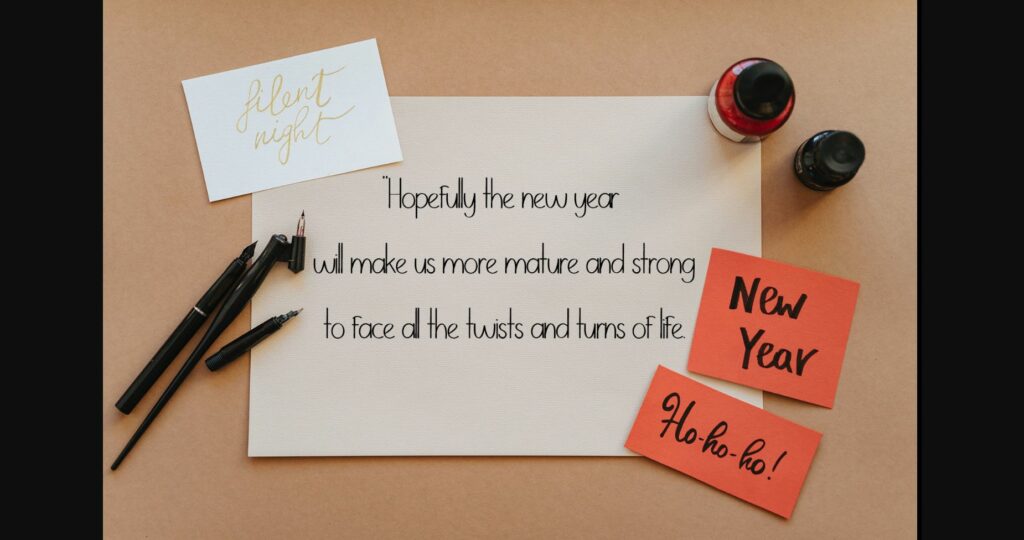 silent
night
"Hopefully the new year
will make us more mature and strong
to face all the twists and turns of life.
New
Year
Ho-ho-ho!